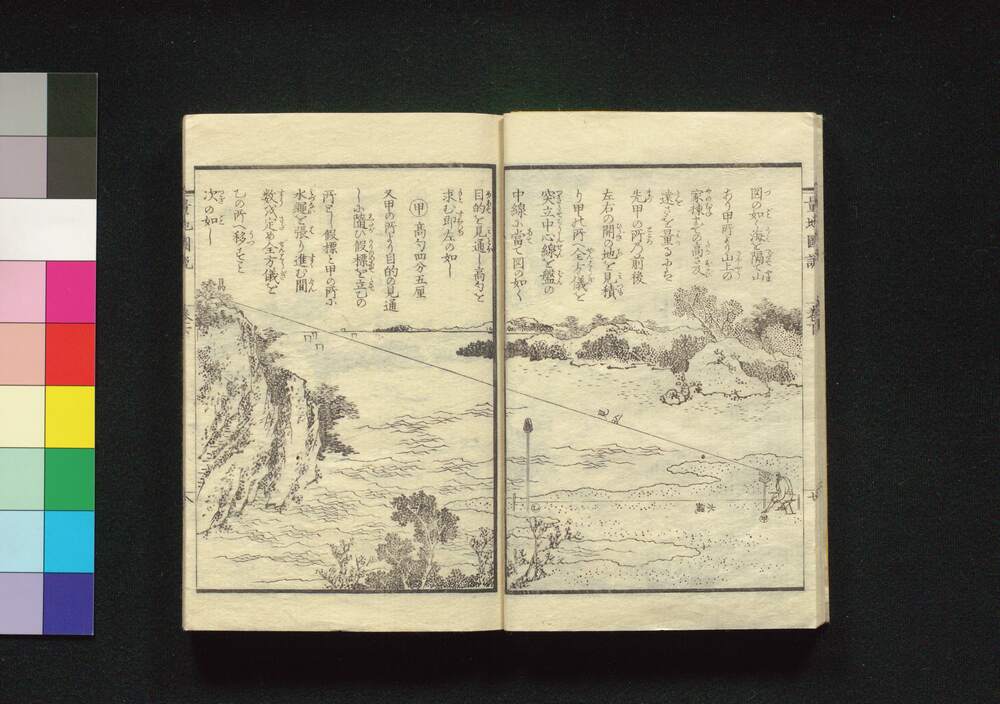 図の如く海陽に山
あり甲所より山上の
家棟までの高さ及
遠さを量るにハ
先甲の所の前後
左右の開の地を見積
り甲の所へ全方儀を
突立中心線を盤の
中線に当て図の如く
目的を見通し高勾を
求む即左の如し
甲 高勾四分五厘
又甲の所より目的の見通
しに随ひ假標を立乙の
所とし假標と甲の所に
水縄を張り進む間
数を定め全方儀を
乙の所へ移すこと
次の如し
水縄
甲
乙